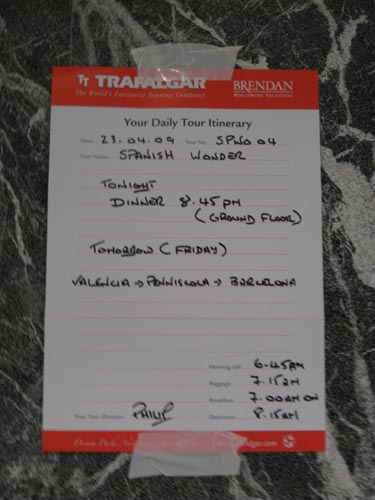 TT TRAFALGAR
The World's Favourite Touring Company
BRENDAN
WORLDWIDE VACATIONS
Your Daily Tour Itinerary
Date: 23.04.09 Tour No: SPWO 04
Tour Name: SPANISH WONDER
TONIGHT
DINNER 8.45PM
(GROUND FLOOR)
TOMORROW (FRIDAY)
VALENCIA → PENNISCOLA → BARCELONA
Morning call: 6.45AM
Baggage: 7.15AM
Breakfast: 7.00AM ON
Your Tour Director: PHILIP Departure: 8.15AM